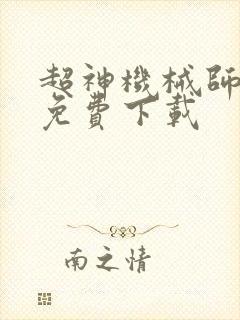 超神機械師
免費下載
南之情